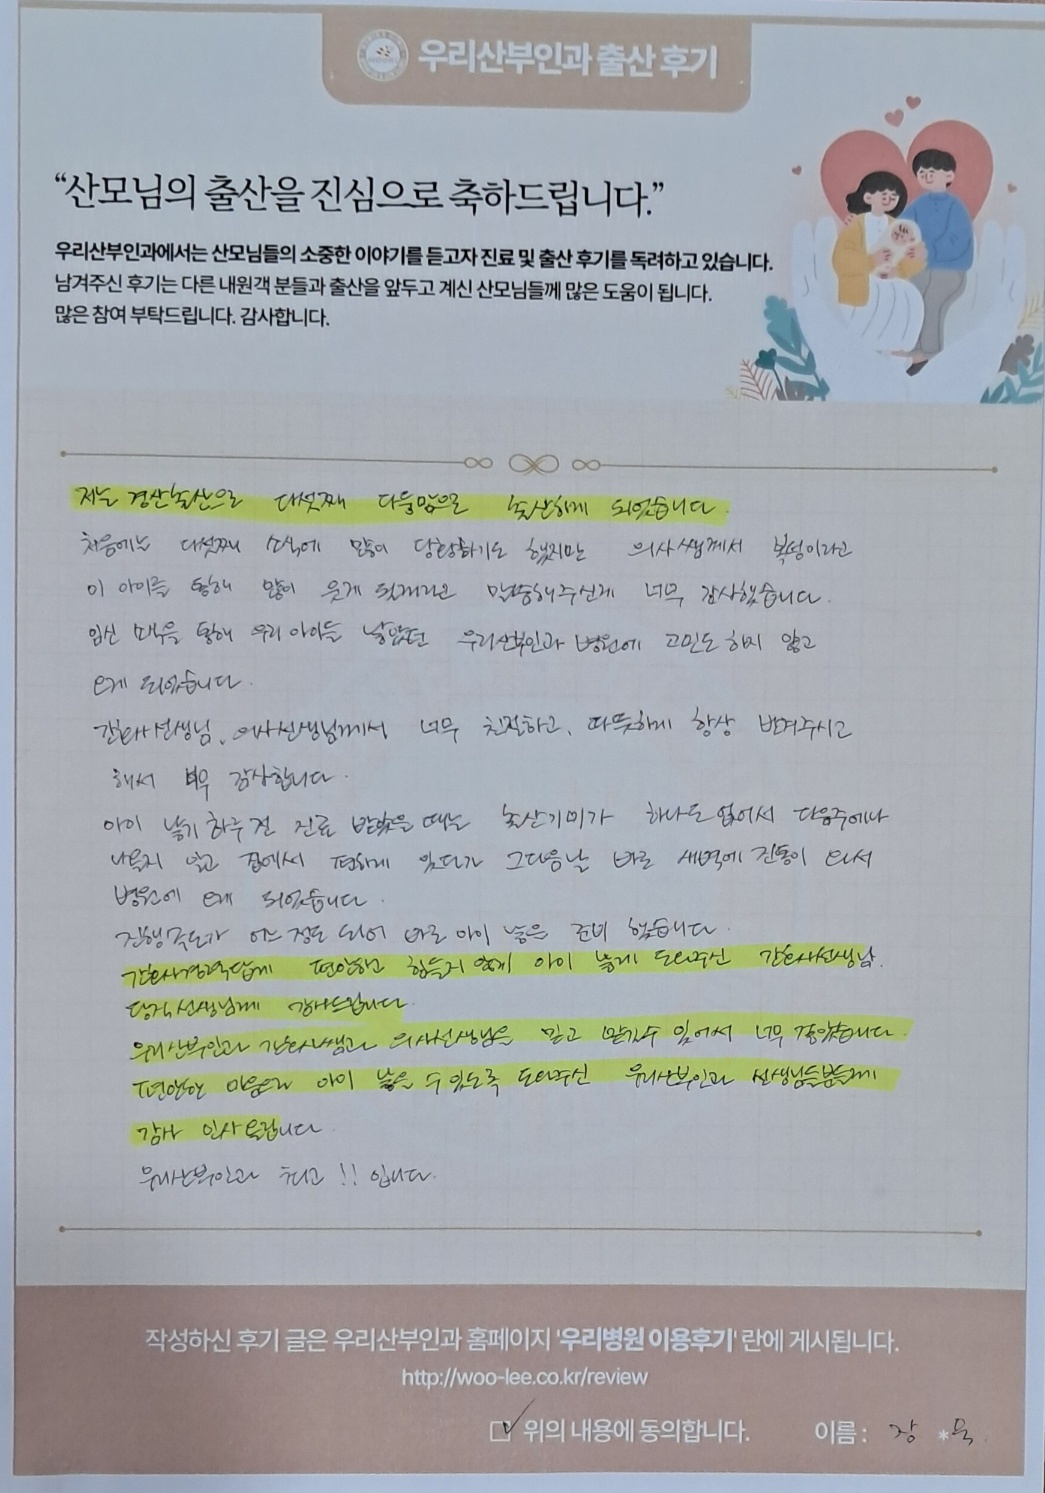 우리산부인과 출산 후기
“산모님의 출산을 진심으로 축하드립니다.”
우리산부인과에서는 산모님들의 소중한 이야기를 듣고자 진료 및 출산 후기를 독려하고 있습니다.
남겨주신 후기는 다른 내원객 분들과 출산을 앞두고 계신 산모님들께 많은 도움이 됩니다.
많은 참여 부탁드립니다. 감사합니다.
저는 경산출산으로 다섯째 다둥맘으로 출산하게 되었습니다.
처음에는 다섯째 소식에 많이 당황하기도 했지만 의사쌤께서 복덩이라고
이 아이를 통해 많이 웃게 될거라고 말씀해주신게 너무 감사했습니다.
임신 소식을 통해 우리 아이들 낳았던 우리산부인과 병원에 고민도 하지 않고
오게 되었습니다.
간호사선생님, 의사선생님께서 너무 친절하고, 따뜻하게 항상 반겨주시고
해서 너무 감사합니다.
아이 낳기 하루 전 진료 받았을 때는 출산기미가 하나도 없어서 다음주에나
나올지 알고 집에서 편하게 있다가 그다음날 바로 새벽에 진통이 와서
병원에 오게 되었습니다.
진행속도가 어느 정도 되어 바로 아이 낳을 준비 했습니다.
간호사경력답게 편안하고 힘들지 않게 아이 낳게 도와주신 간호사선생님,
당직선생님께 감사드립니다.
우리산부인과 간호사쌤과 의사선생님을 믿고 맡길수 있어서 너무 좋았습니다.
편안한 마음으로 아이 낳을 수 있도록 도와주신 우리산부인과 선생님들분들께
감사 인사 드립니다.
우리산부인과 최고!! 입니다.
작성하신 후기 글은 우리산부인과 홈페이지 '우리병원 이용후기' 란에 게시됩니다.
http://woo-lee.co.kr/review
위의 내용에 동의합니다. 이름 : 장 *옥